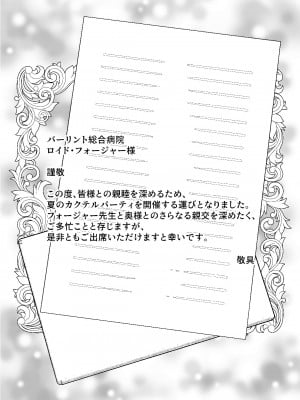 バーリント総合病院
ロイド・フォージャー様
謹敬
この度、皆様との親睦を深めるため、
夏のカクテルパーティを開催する運びとなりました。
フォージャー先生と奥様とのさらなる親交を深めたく、
ご多忙こととと存じますが、
是非ともご出席いただけますと幸いです。
敬具